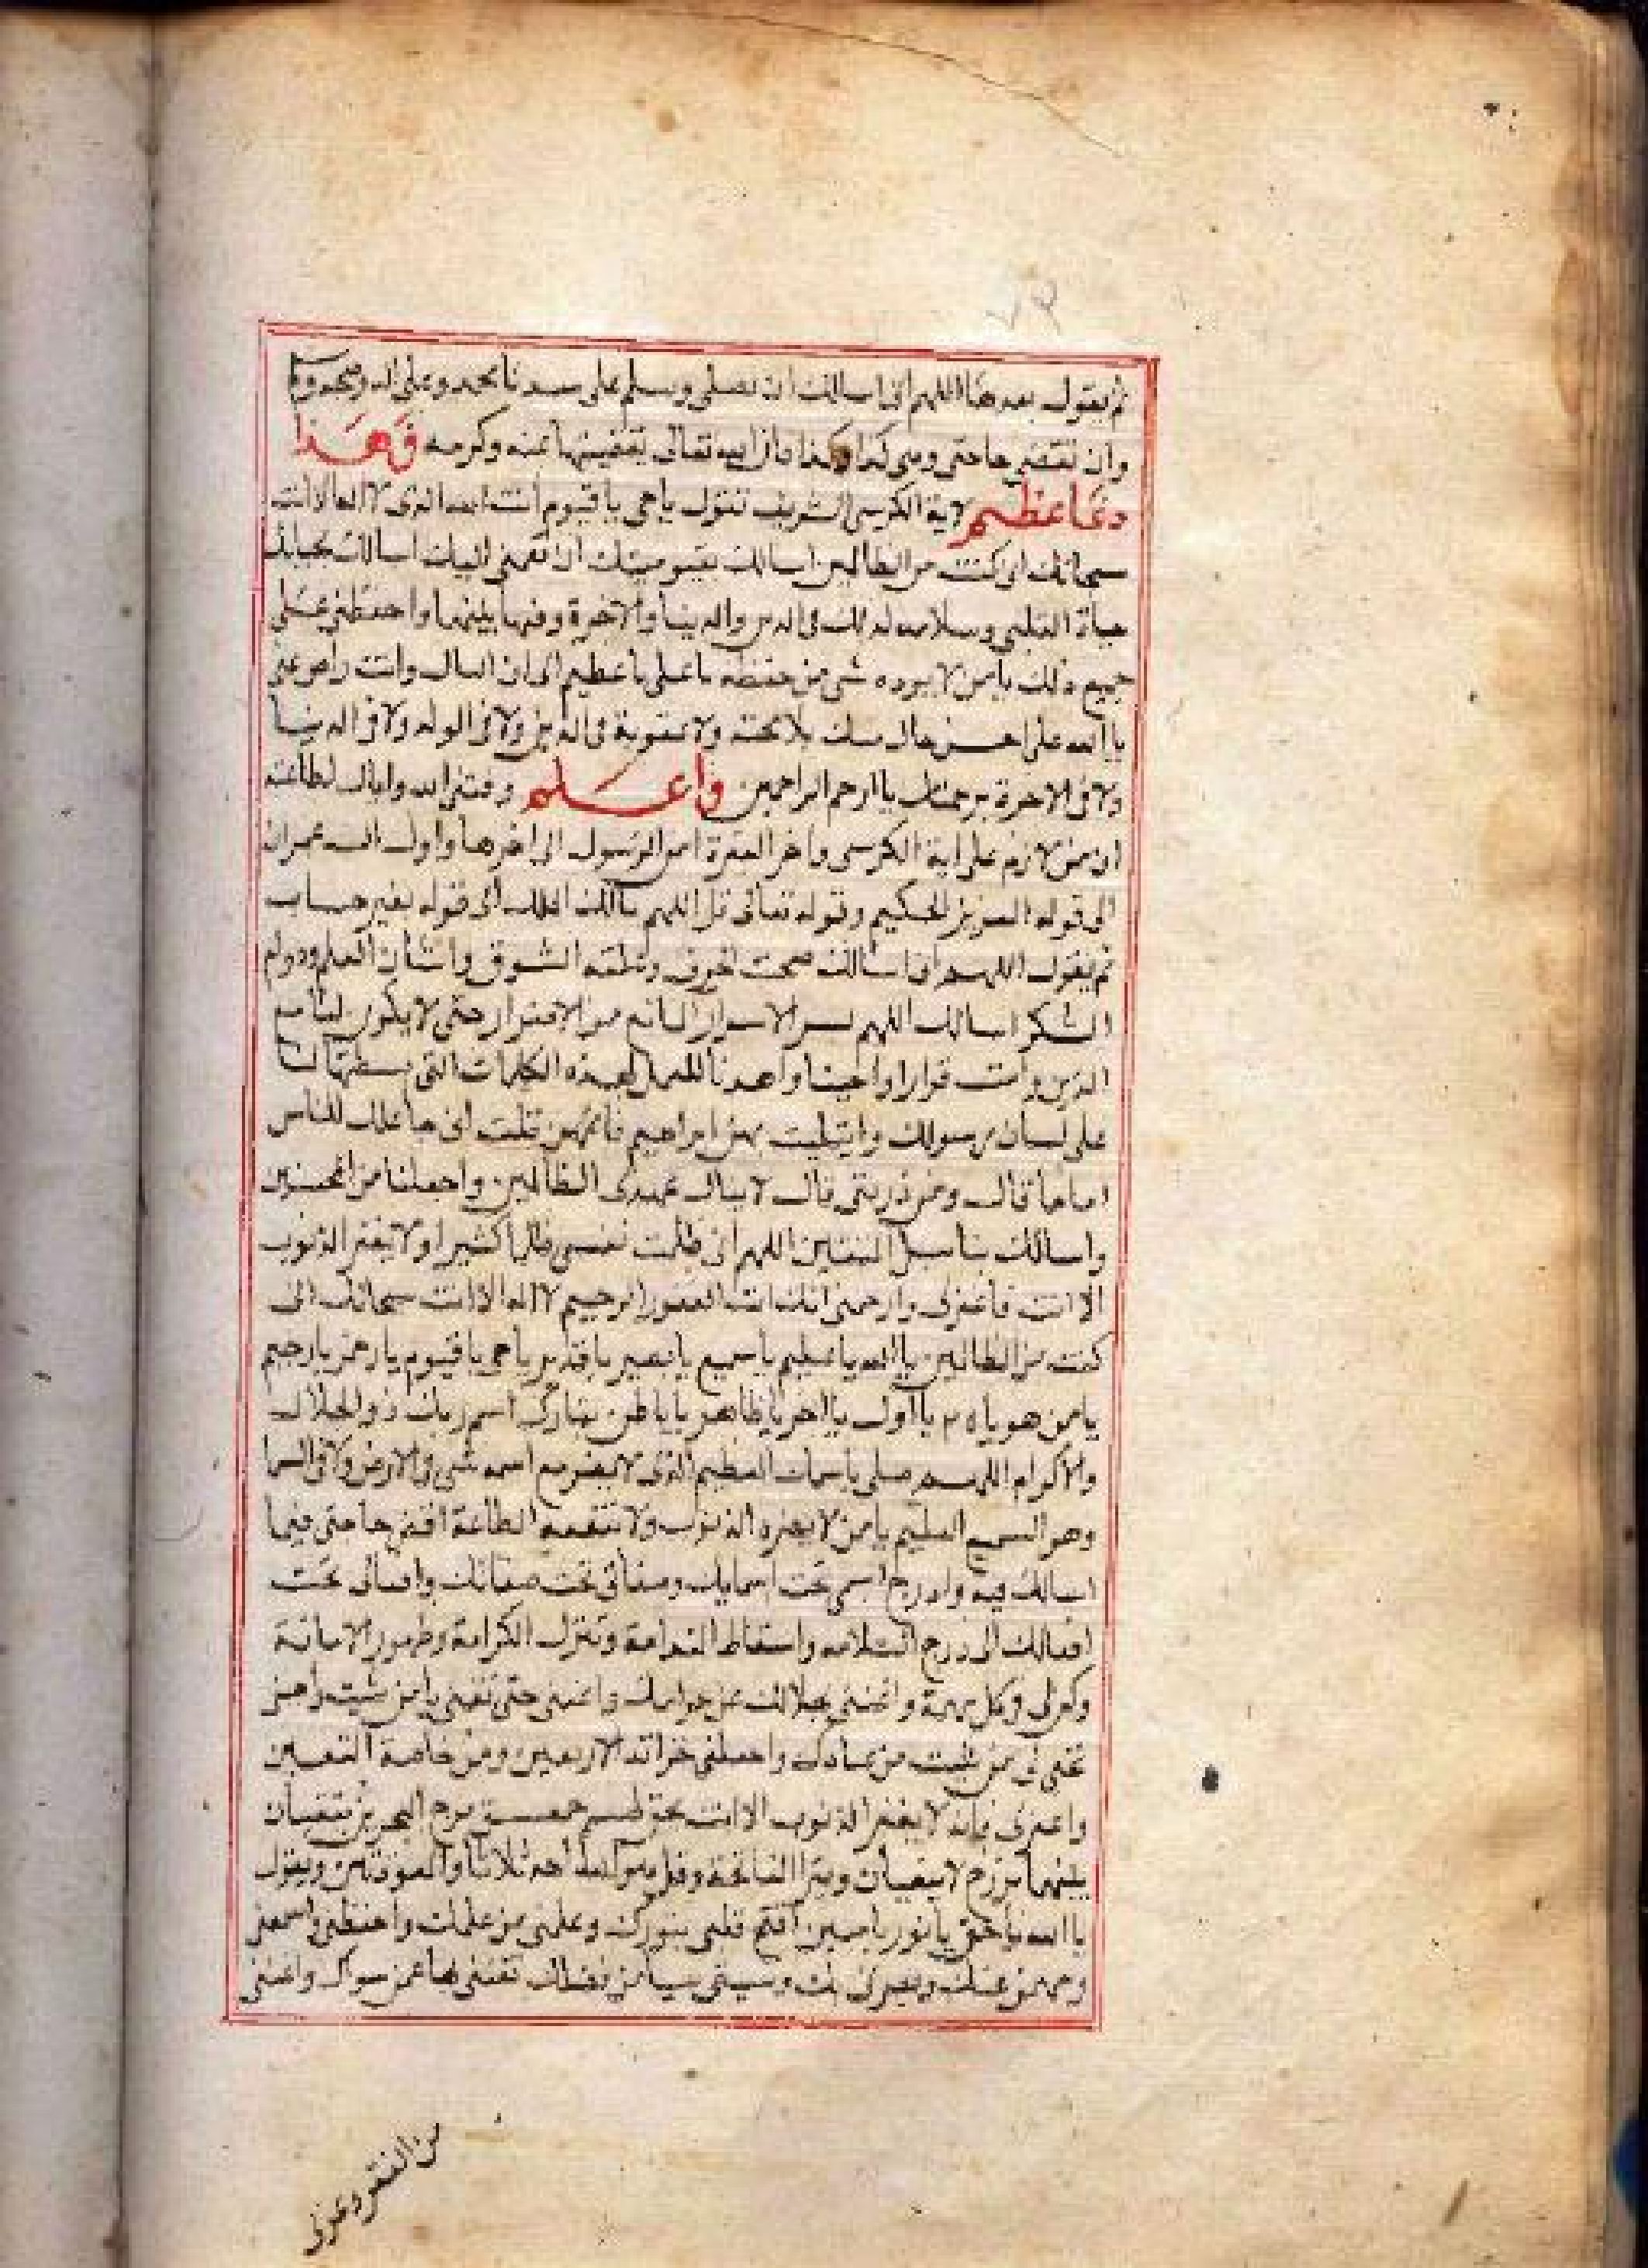 ثم يقول بعد هذا اللهم انى اسالك ان تصلى وتسلم على سيدنا محمد وعلى اله وصحبه
وان تقضى حاجتى وهى كذا وكذا فان الله تعالى يقضيها بمنه وكرمه وهذا
دعا عظيم لاية الكرسى الشريف تقول ياحى ياقيوم انت الله الذى لا اله الا انت
سبحانك انى كنت من الظالمين اسالك بقيوميتك ان تقمنى اليك اسالك بحياتك
حياة القلبى وسلامه لدلك فى الدين والدنيا والاخرة وفيما بينهما واحفظنى على
جميع ذلك يامن لا يوده شى من حفظه ياعلى ياعظيم الى ان القاك وانت راض عنى
ياالله على احسن حال منك بلا محنة ولا عقوبة فى الدين ولا فى الولد ولا فى الدنيا
ولا فى الاخرة برحمتك ياارحم الراحمين واعلم وفقنى الله واياك لطاعته
ان من لازم على اية الكرسى واخر البقرة امن الرسول الى اخرها واول ال عمران
الى قوله العزيز الحكيم وقوله تعالى قل اللهم مالك الملك الى قوله بغير حساب
ثم يقول اللهم انى اسالك صحت الخوف وغلبة الشوق واتشان العلم ودوام
الشكر اسالك اللهم بسر الاسرار المانع من الاضرار حتى لا يكون لنا مع
الذنب قرارا واجينا واهدنا للعمل لهذه الكلمات التى بسطتها لنا
على لسان رسولك وابتليت بهن ابراهيم فاتمهن قلت انى جاعلك للناس
اماما قال ومن ذريتى قال لا ينال عهدى الظالمين واجعلنا من المحسنين
واسالك بنا سبل المتقين اللهم انى ظلمت نفسى ظلما كثيرا ولا يغفر الذنوب
الا انت فاغفرلى وارحمنى انك انت الغفور الرحيم لا اله الا انت سبحانك انى
كنت من الظالمين ياالله ياعليم ياسميع يابصير ياقدير ياحى ياقيوم يارحمن يارحيم
يامن هو ياه يااول يااخر ياظاهر ياباطن تبارك اسم ربك ذو الجلال
والاكرام اللهم صلى باسمك العظيم الذى لا يضر مع اسمه شى فى الارض ولا فى السما
وهو السميع العليم يامن لا يضره الذنوب ولا تنفعه الطاعة اقض حاجتى فيما
اسالك فيه وادرج اسمى تحت اسمايك وصفاتى تحت صفاتك وافعالى تحت
افعالك الى درج السلامه واسقاط الندامة وتنزل الكرامة وظهور الامانة
وكن لى فى كل واغننى بحلالك عن حرامك واغننى حتى تغنى بى من شيت واحينى
تحيى بى من شيت من عبادك واجعلنى خزانة الاربعين ومن خاصة المتقين
واغفرلى فانه لا يغفر الذنوب الا انت بحق طسم حمعسق مرج البحرين يلتقيان
بينهما برزخ لا يبغيان ويقرا الفاتحة وقل هو الله احد ثلاثا والمعوذتين ويقول
ياالله ياحق يانور يامبين افتح قلبى بنورك وعلمنى من علمك واحفظنى واسمعنى
وفهمنى عنك وبصرنى بك وسببى سببا من فضلك تغننى بها عمن سواك واغننى
من الفقر وعزنى